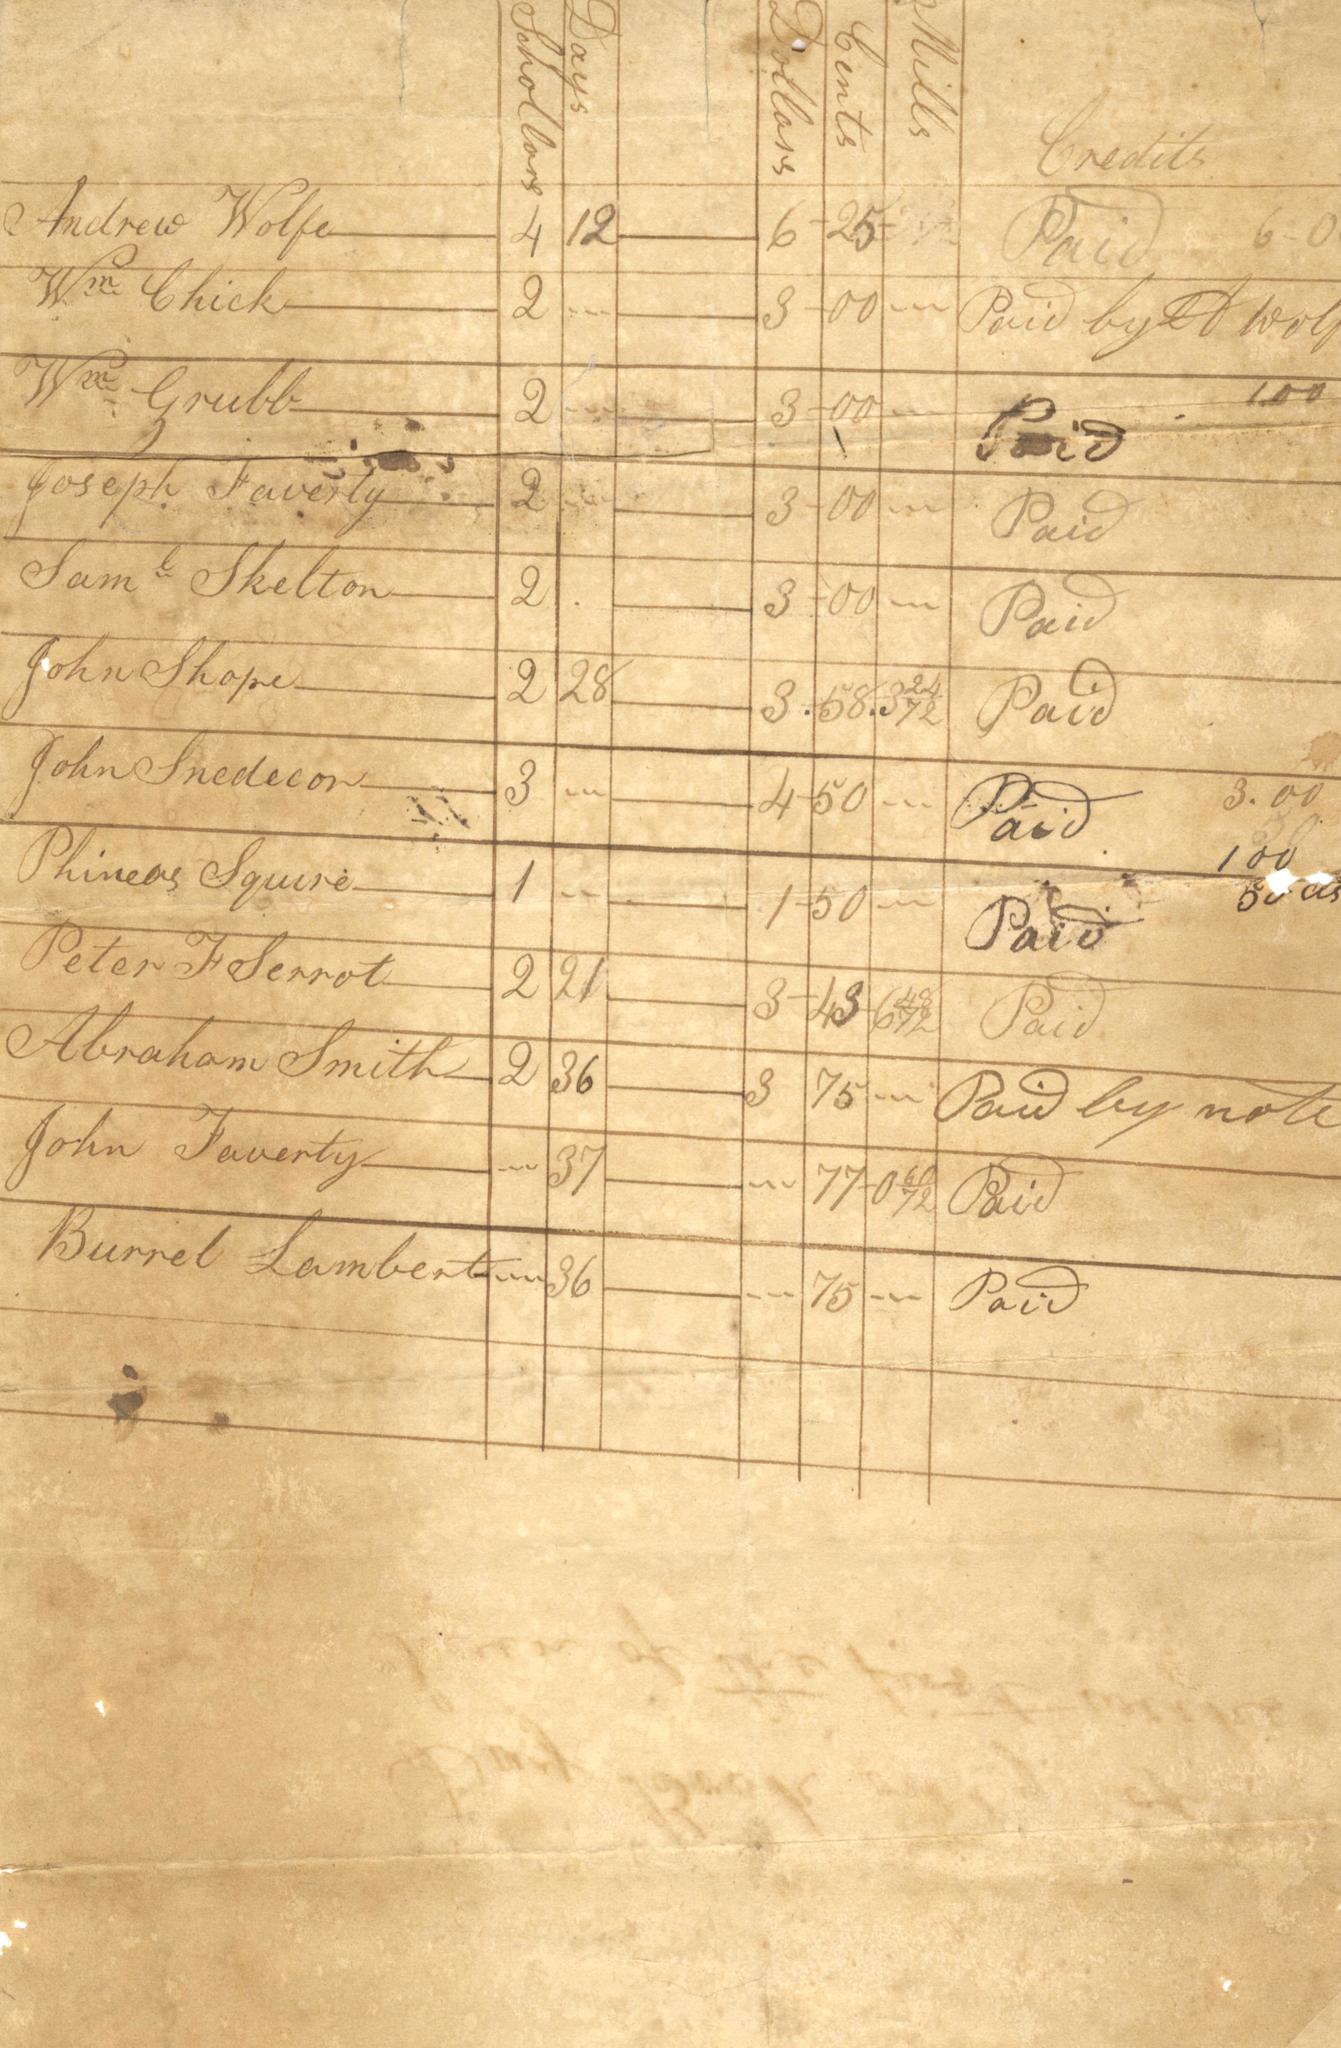 Schollors Days Dollars Cents Mills Credits
Andrew Wolfe 4 12 6-25 Paid 6-0
Wm Chick 2 3-00 Paid by A Wolf
Wm Grubb 2 3-00 Paid 1.00
Joseph Faverty 2 3-00 Paid
Saml Skelton 2 3-00 Paid
John Shope 2 28 3.58.3 24/72 Paid
John Snedecor 3 4-50 Paid 3.00
1 00
Phineas Squire 1 1-50 Paid 50 cts
Peter F Serrot 2 21 3-43-6 48/72 Paid
Abraham Smith 2 36 3 75 Paid by note
John Faverty 37 77-0 60/72 Paid
Burrel Lambert 36 75 Paid